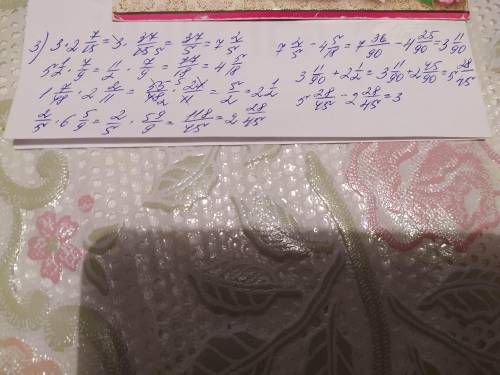 3) 3 · 2 7/15 = 3 · 37/15 5 = 37/5 = 7 2/5
5 1/2 · 7/9 = 11/2 · 7/9 = 77/18 = 4 5/18
1 7/48 · 2 5/11 = 55/48 2 · 27/11 = 5/2 = 2 1/2
2/5 · 6 5/9 = 2/5 · 59/9 = 118/45 = 2 28/45
7 2/5 - 4 5/18 = 7 36/90 - 4 25/90 = 3 11/90
3 11/90 + 2 1/2 = 3 11/90 + 2 45/90 = 5 28/45
5 28/45 - 2 28/45 = 3